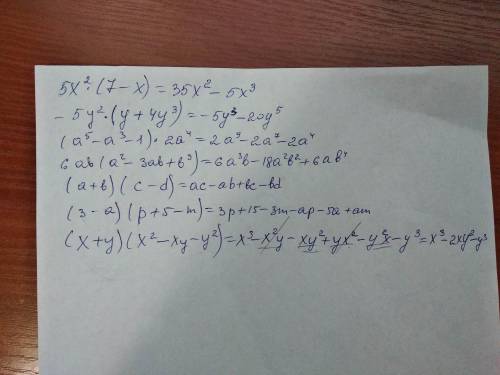 5x²·(7-x)=35x²-5x³
-5y²·(y+4y³)=-5y³-20y⁵
(a⁵-a³-1)·2a⁴=2a⁹-2a⁷-2a⁴
6ab(a²-3ab+b³)=6a³b-18a²b²+6ab⁴
(a+b)(c-d)=ac-ab+bc-bd
(3-a)(p+5-m)=3p+15-3m-ap-5a+am
(x+y)(x²-xy-y²)=x³-x²y-xy²+yx²-y²x-y³=x³-2xy²-y³